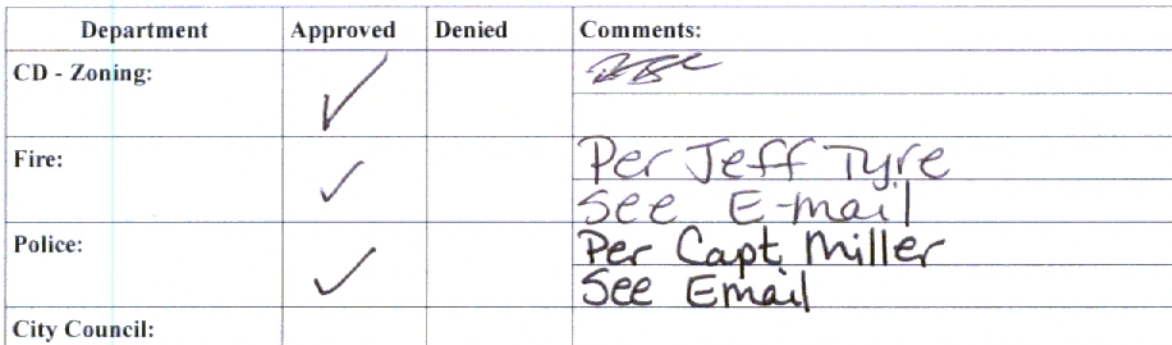 Department Approved Denied Comments:
CD - Zoning: ✓
Fire: ✓ Per Jeff Tyre
See E-mail
Police: ✓ Per Capt Miller
See Email
City Council: